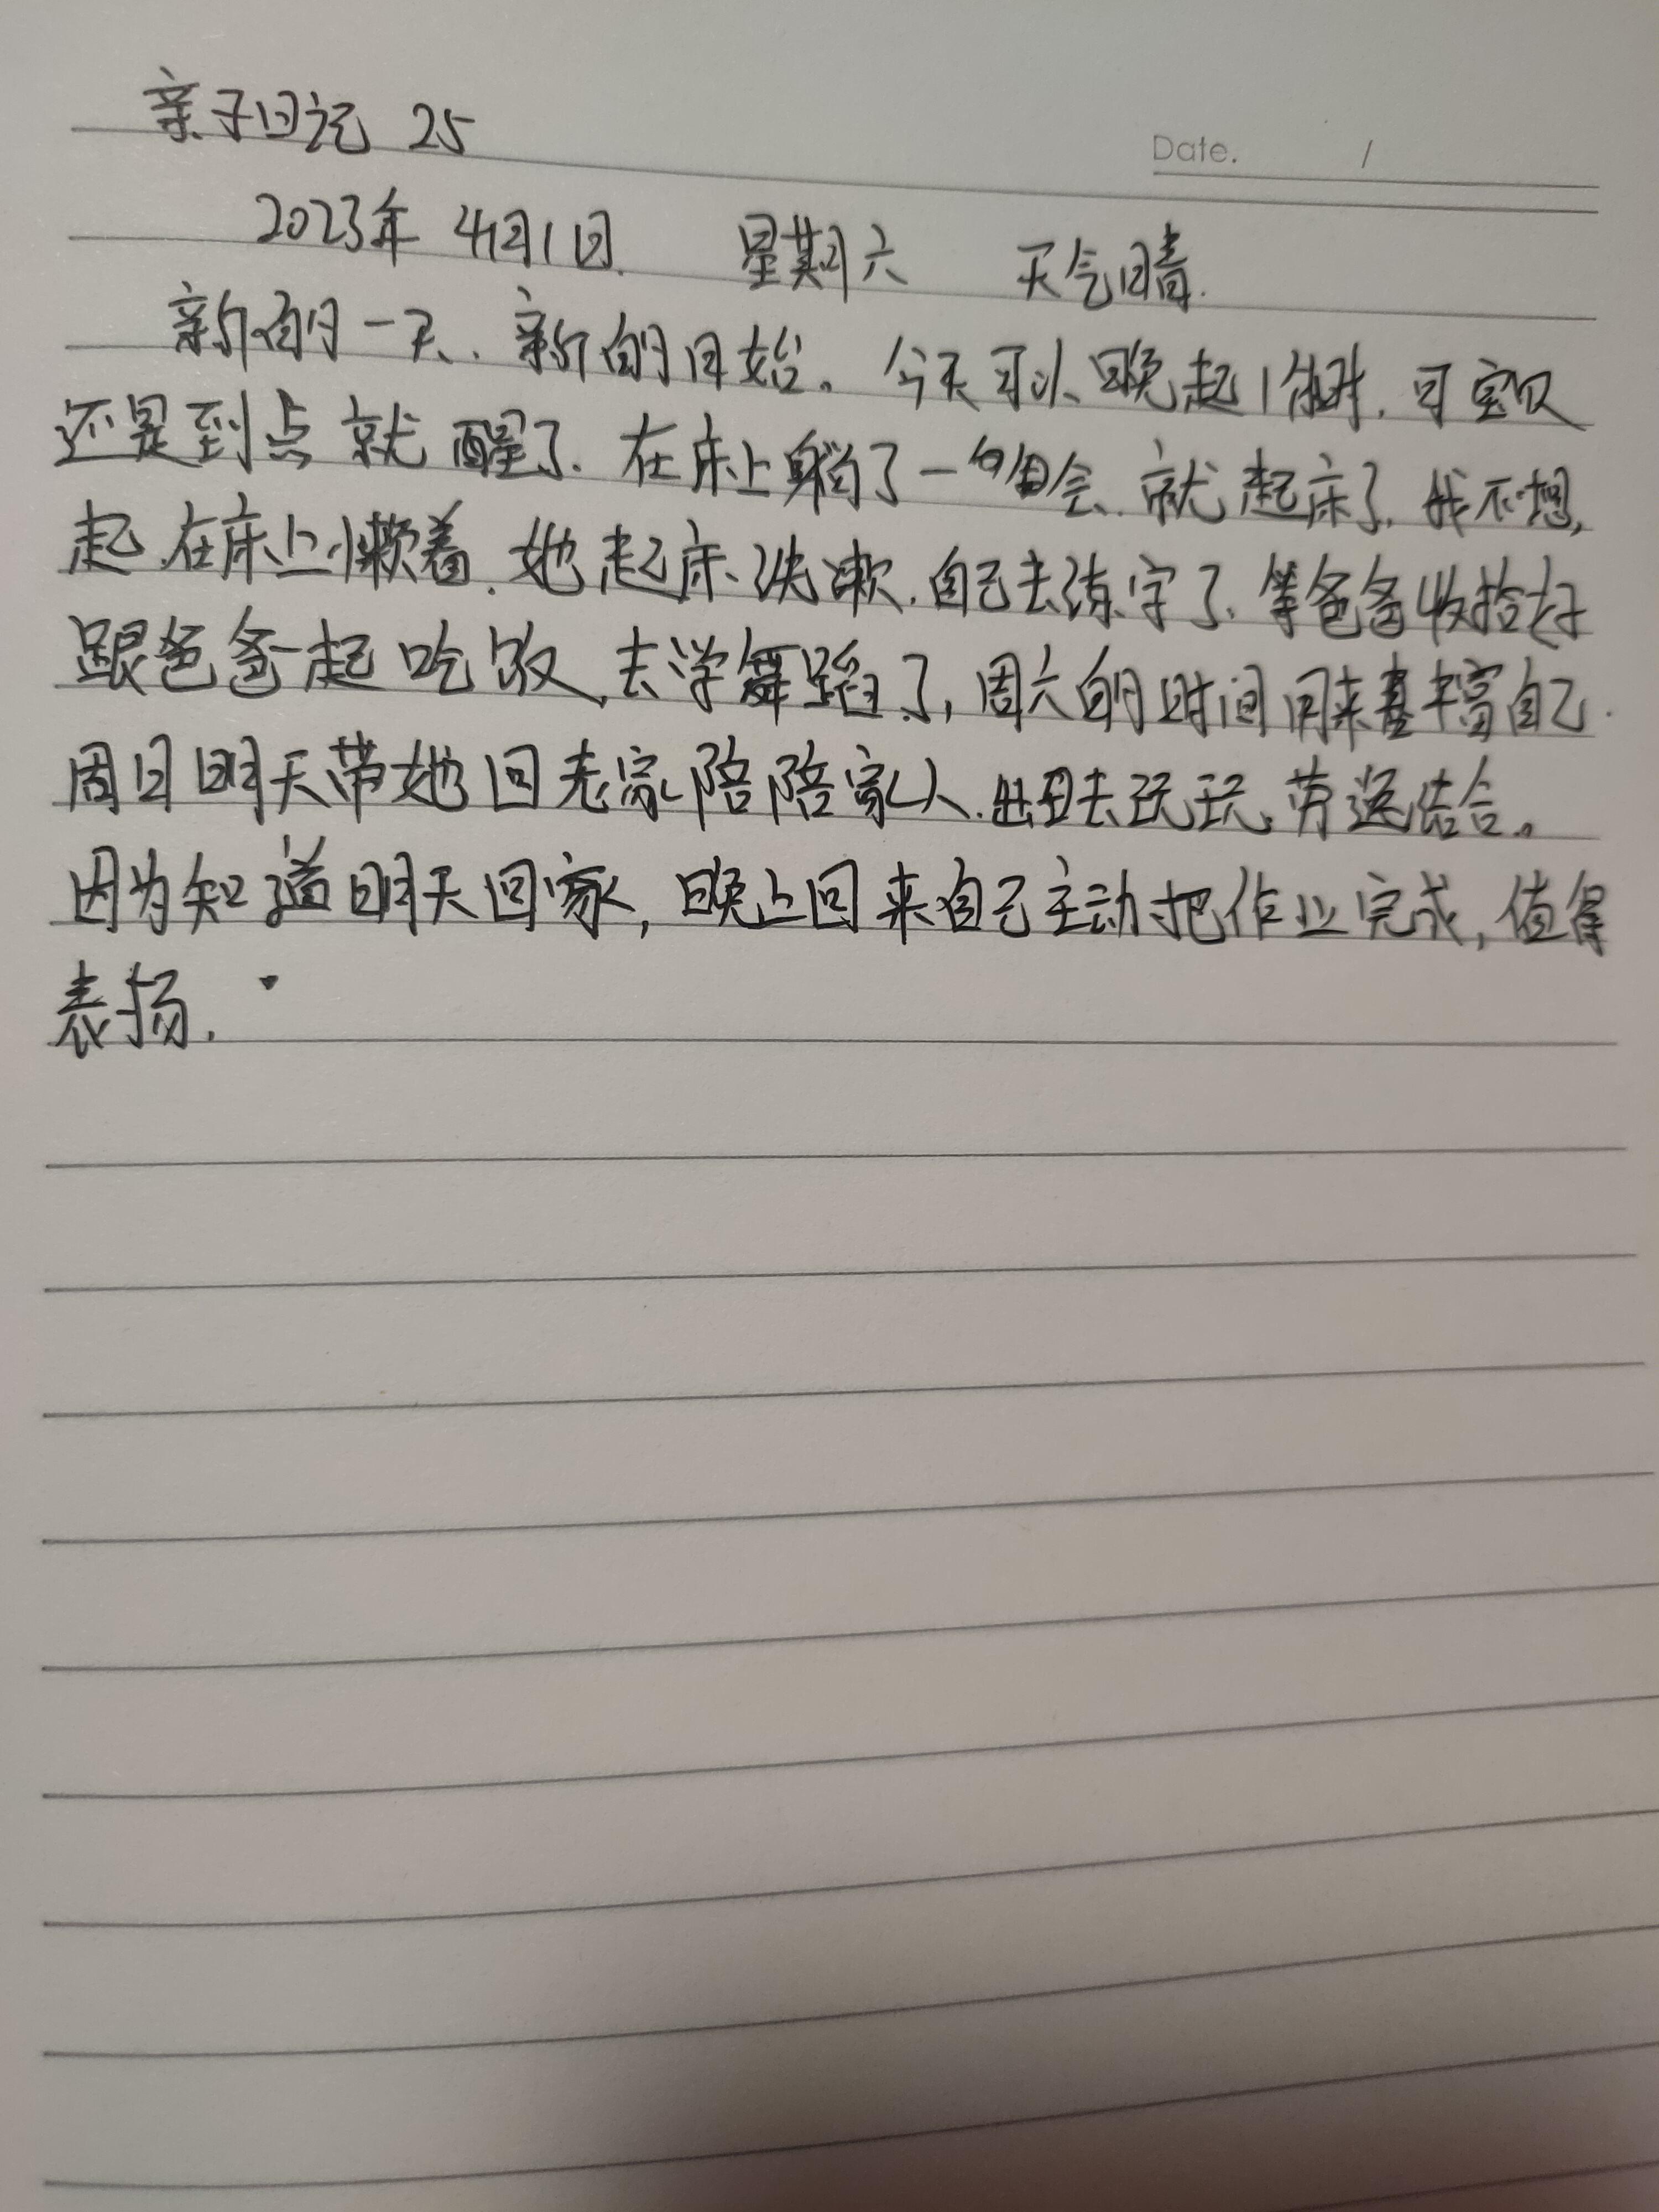 亲子日记 25
Date. /
2023年 4月1日. 星期六 天气晴.
新的一天、新的月始。今天可以晚起1小时,可宝贝
还是到点就醒了.在床上躺了一会.就起床了.我不想,
起.在床上懒着.她起床、洗漱.自己去练字了.等爸爸收拾好
跟爸爸一起吃饭,去学舞蹈了,周六的时间用来丰富自己.
周日明天带她回老家陪陪家人.出去玩玩,劳逸结合。
因为知道明天回家,晚上回来自己主动把作业完成,值得
表扬.